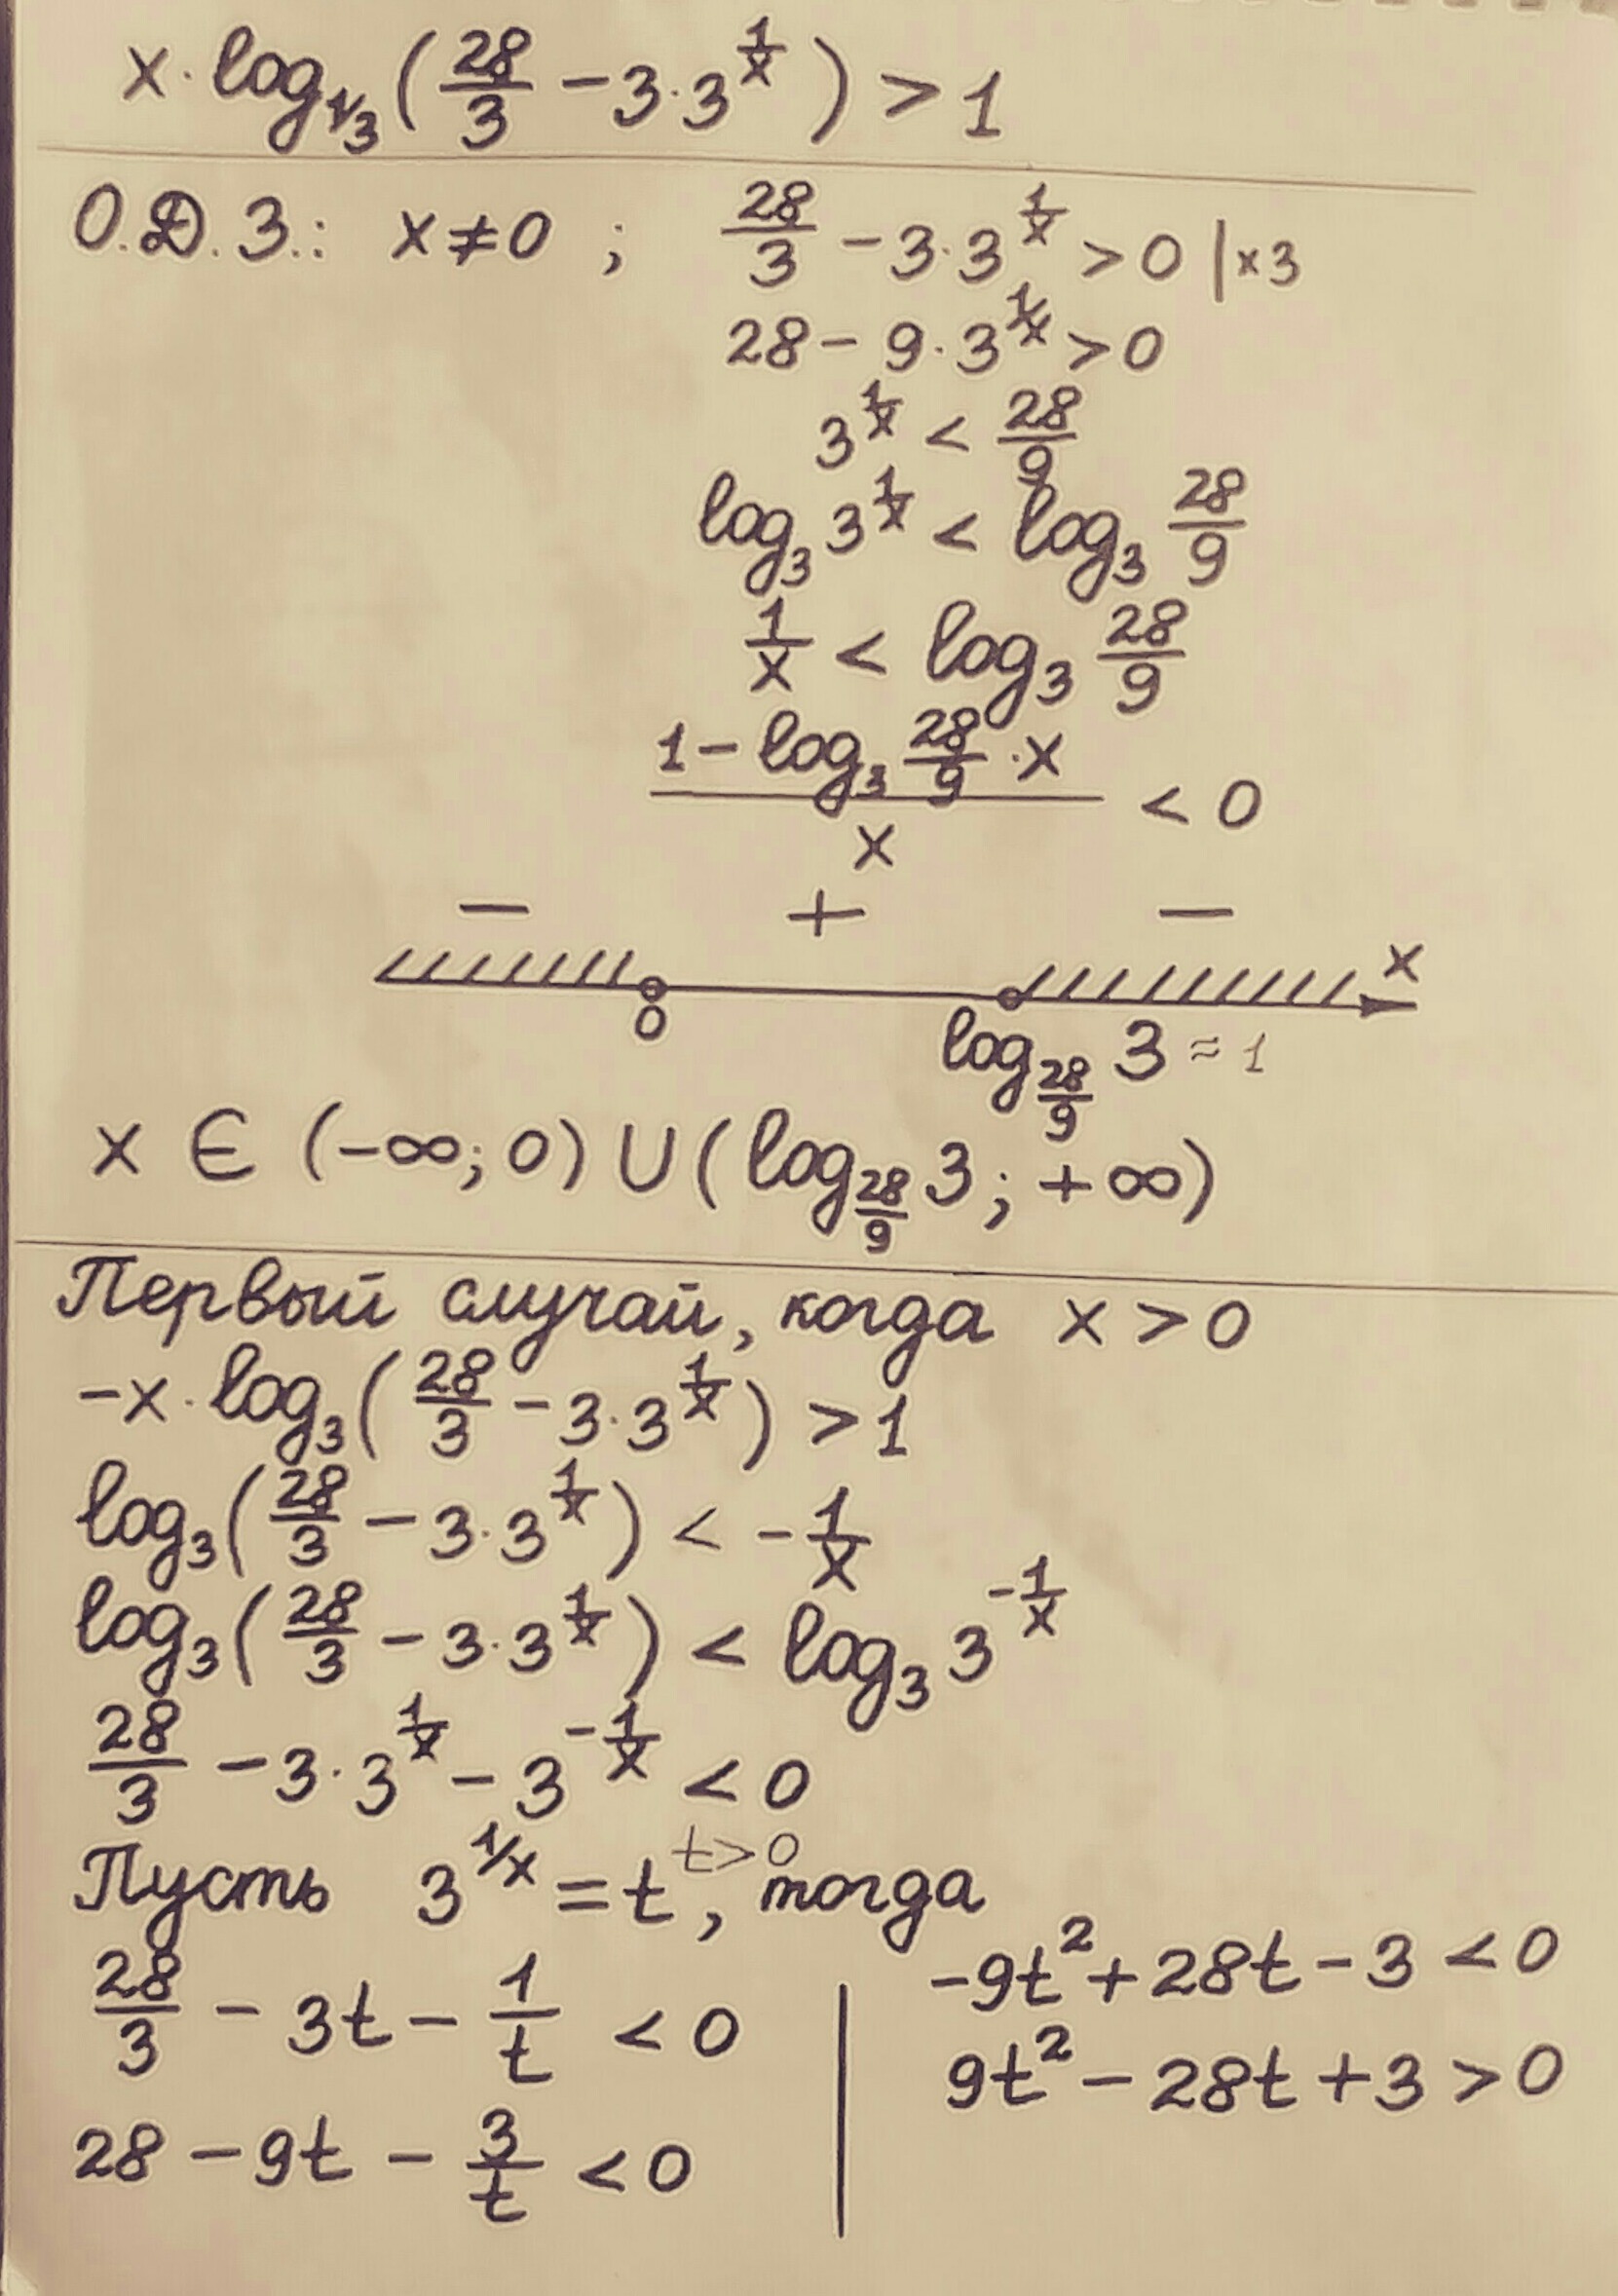 x · log_{1/3} (28/3 - 3·3^{1/x}) > 1
О.Д.З.: x ≠ 0 ; 28/3 - 3·3^{1/x} > 0 | ×3
28 - 9·3^{1/x} > 0
3^{1/x} < 28/9
log_3 3^{1/x} < log_3 28/9
1/x < log_3 28/9
(1 - log_3 28/9 · x)/x < 0
− + −
x
0 log_{28/9} 3 ≈ 1
x ∈ (-∞; 0) ∪ (log_{28/9} 3; +∞)
Первый случай, когда x > 0
-x · log_3 (28/3 - 3·3^{1/x}) > 1
log_3 (28/3 - 3·3^{1/x}) < -1/x
log_3 (28/3 - 3·3^{1/x}) < log_3 3^{-1/x}
28/3 - 3·3^{1/x} - 3^{-1/x} < 0
Пусть 3^{1/x} = t, t>0 тогда
28/3 - 3t - 1/t < 0
28 - 9t - 3/t < 0
-9t² + 28t - 3 < 0
9t² - 28t + 3 > 0